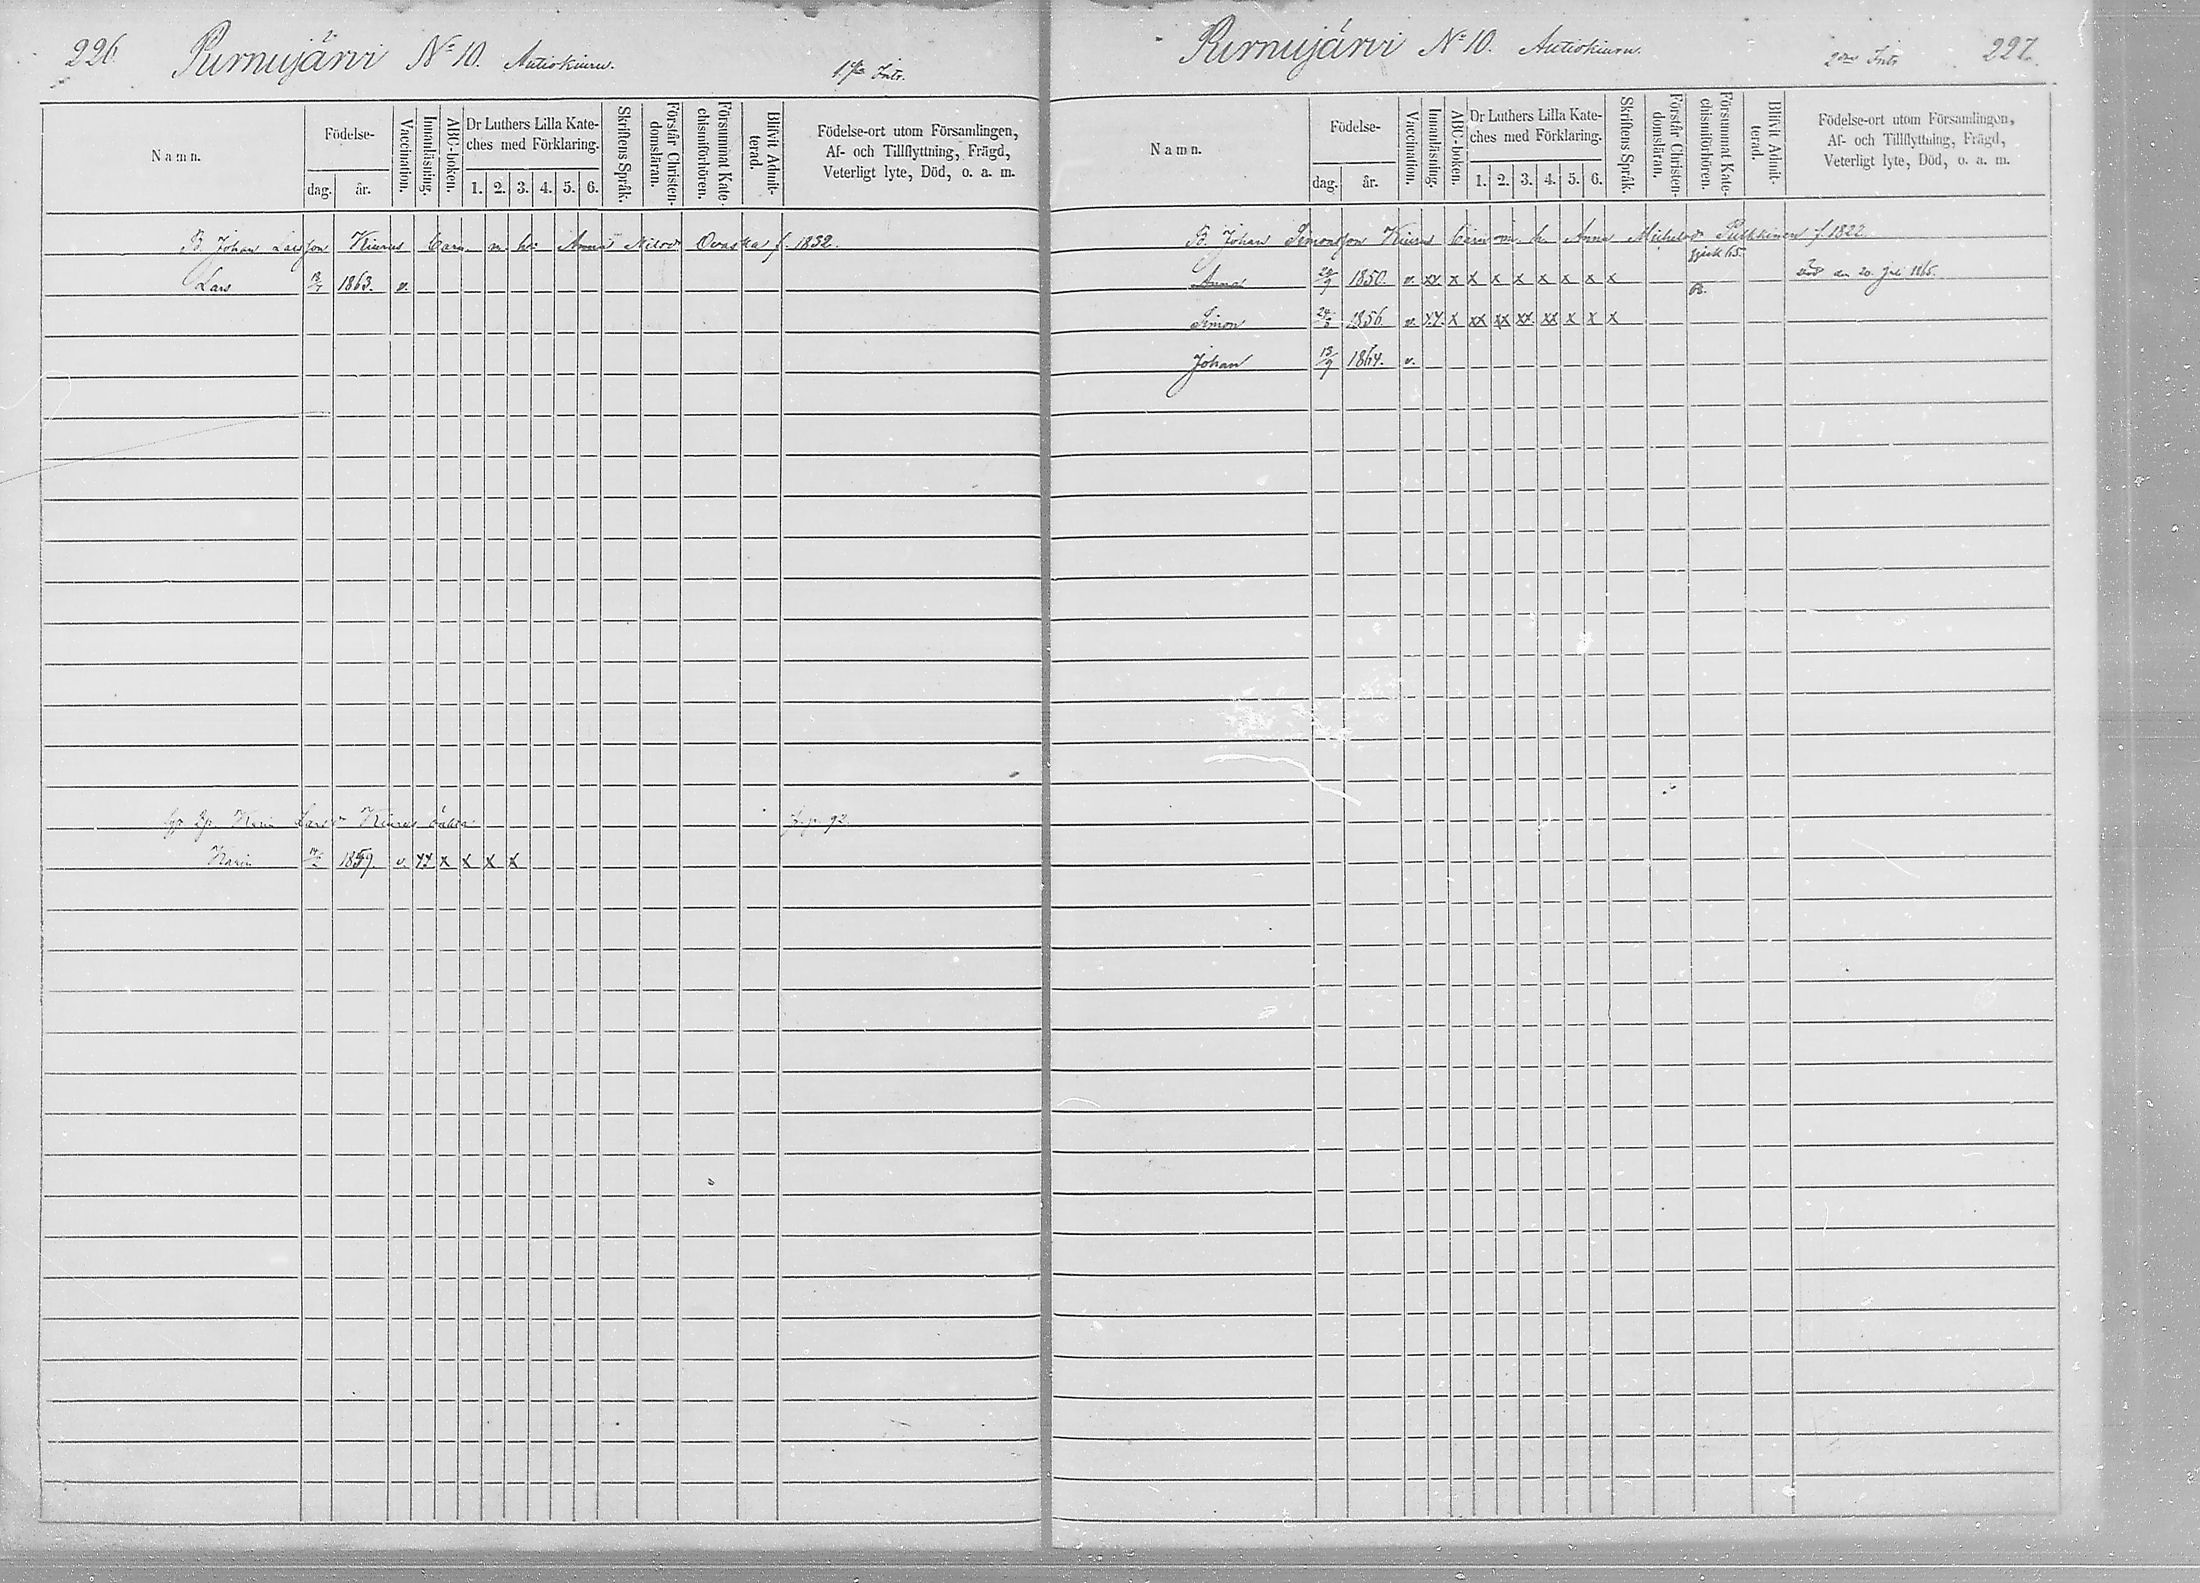 226 Purnujärvi № 10. Autiokiuru. 1sta Intr.
Namn.
Födelse-
dag. år.
Vaccination.
Innanläsning.
ABC-boken.
Dr Luthers Lilla Kate-
ches med Förklaring.
1. 2. 3. 4. 5. 6.
Skriftens Språk.
Förstår Christen-
domsläran.
Försummat Kate-
chismiförhören.
Blifvit Admit-
terad.
Födelse-ort utom Församlingen,
Af- och Tillflyttning, Frägd,
Veterligt lyte, Död, o. a. m.
B. Johan Larsson Kiurus barn m. h. Anna Nilsdr Ovaska f. 1832.
Lars 1863. v.
Karin Larsdr Kiurus f. p. 92.
Karin 1859. v. xx x x x x
Purnujärvi № 10. Autiokiuru. 2dra Intr. 227.
Namn.
Födelse-
dag. år.
Vaccination.
Innanläsning.
ABC-boken.
Dr Luthers Lilla Kate-
ches med Förklaring.
1. 2. 3. 4. 5. 6.
Skriftens Språk.
Förstår Christen-
domsläran.
Försummat Kate-
chismiförhören.
Blifvit Admit-
terad.
Födelse-ort utom Församlingen,
Af- och Tillflyttning, Frägd,
Veterligt lyte, Död, o. a. m.
B. Johan Simonsson Kiurus barn m. h. Anna Mickelsdr Pulkkinen f. 1822.
Anna 1850. v. xx x x x x x x x x död den 20. juli 1865.
Simon 24/6 1856. v. xx x xx xx xx xx x x x
Johan 13/9 1864. v.